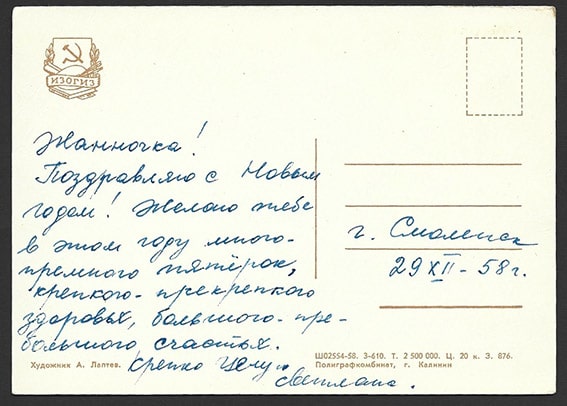 ИЗОГИЗ
Жанночка!
Поздравляю с Новым
годом! Желаю тебе
в этом году много-
премного пятёрок,
крепкого-прекрепкого
здоровья, большого-пре-
большого счастья.
Крепко целую
Светлана.
г. Смоленск
29 XII - 58 г.
Художник А. Лаптев.
Ш02554-58. З-610. Т. 2 500 000. Ц. 20 к. З. 876.
Полиграфкомбинат, г. Калинин